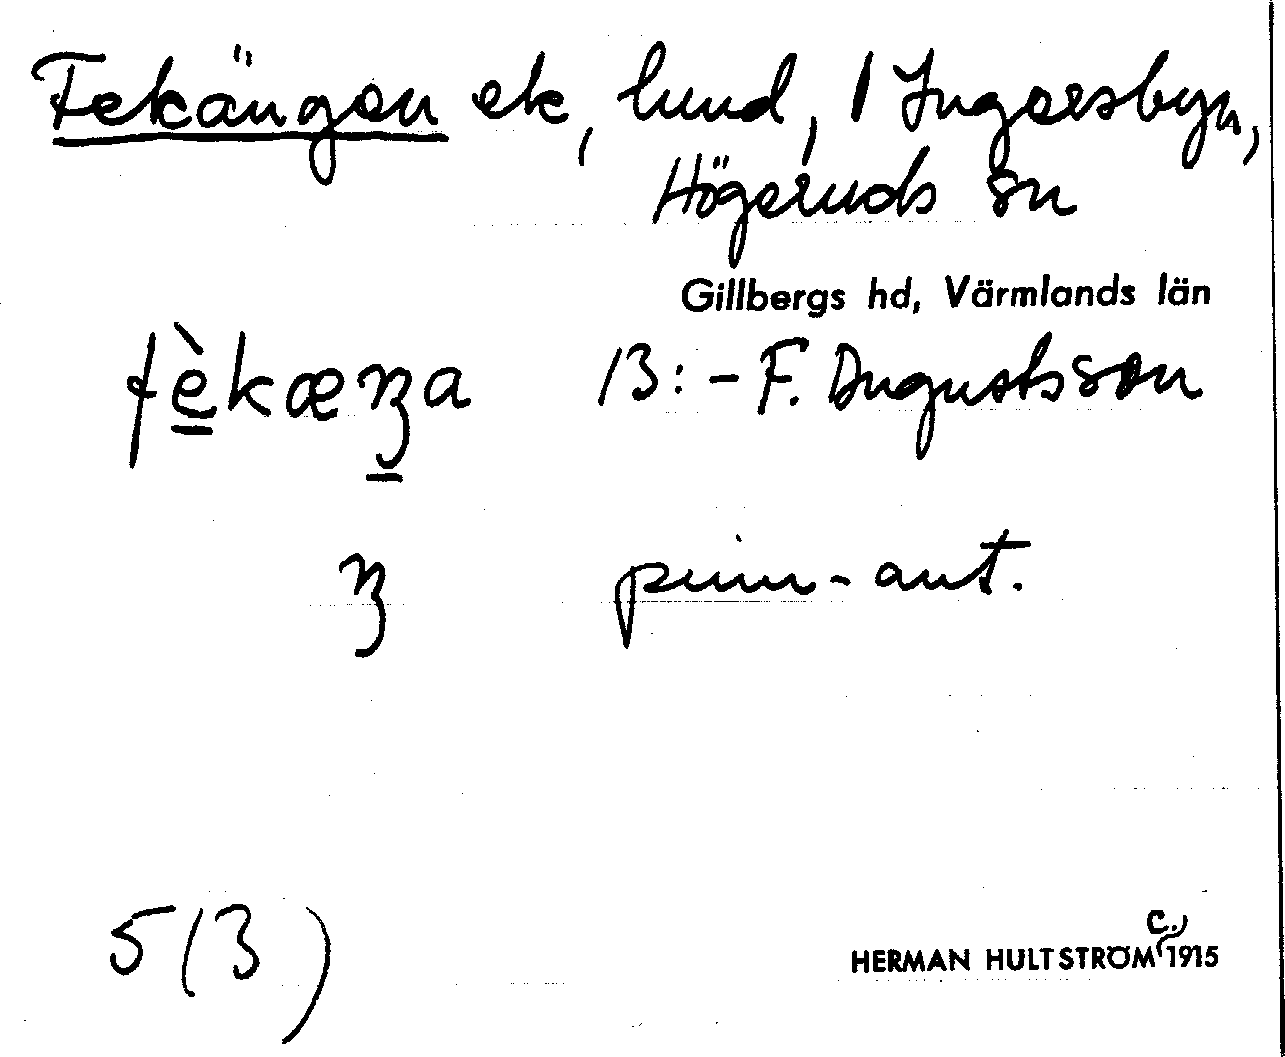 Fekängen ek, lund, 1 Ingersbyn,
Högeruds sn
Gillbergs hd, Värmlands län
fèkæŋa 13:- F. Augustsson
ŋ prim-ant.
5(3)
HERMAN HULTSTRÖM c. 1915